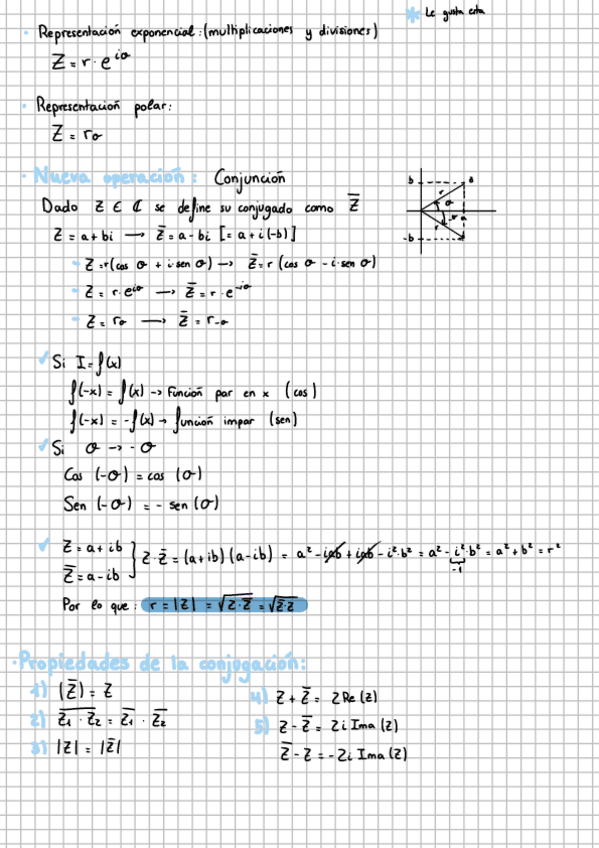 * Le gusta esta
· Representación exponencial: (multiplicaciones y divisiones)
Z = r · e^{iσ}
· Representación polar:
Z = r_σ
· Nueva operación: Conjunción
Dado Z ∈ ℂ se define su conjugado como Z̅
Z = a + bi → Z̅ = a - bi [= a + i(-b)]
- Z = r(cos σ + i·sen σ) → Z̅ = r (cos σ - i·sen σ)
- Z = r·e^{iσ} → Z̅ = r·e^{-iσ}
- Z = r_σ → Z̅ = r_{-σ}
b a
r
σ
-σ a
r
-b
✓ Si I = f(x)
f(-x) = f(x) → Función par en x (cos)
f(-x) = -f(x) → función impar (sen)
✓ Si σ → -σ
Cos (-σ) = cos (σ)
Sen (-σ) = - sen (σ)
✓ Z = a + ib
Z̅ = a - ib
} Z · Z̅ = (a + ib) (a - ib) = a² - iab + iab - i²·b² = a² - i²·b² = a² + b² = r²
-1
Por lo que: r = |Z| = √Z·Z̅ = √Z̅·Z
· Propiedades de la conjugación:
1) (Z̅) = Z
2) \overline{Z₁ · Z₂} = Z̅₁ · Z̅₂
3) |Z| = |Z̅|
4) Z + Z̅ = 2 Re (Z)
5) Z - Z̅ = 2i Ima (Z)
Z̅ - Z = -2i Ima (Z)